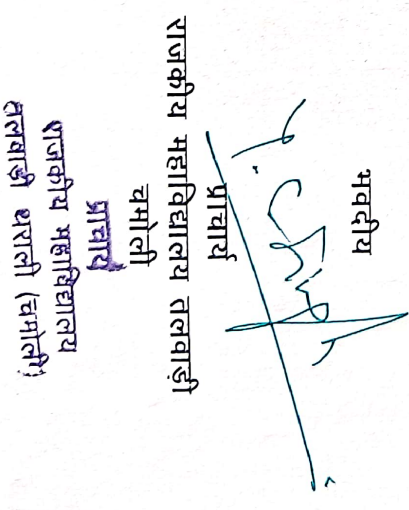 भवदीय
प्राचार्य
राजकीय महाविद्यालय तलवाड़ी
चमोली
प्राचार्य
राजकीय महाविद्यालय
तलवाडी थराली (चमोली)